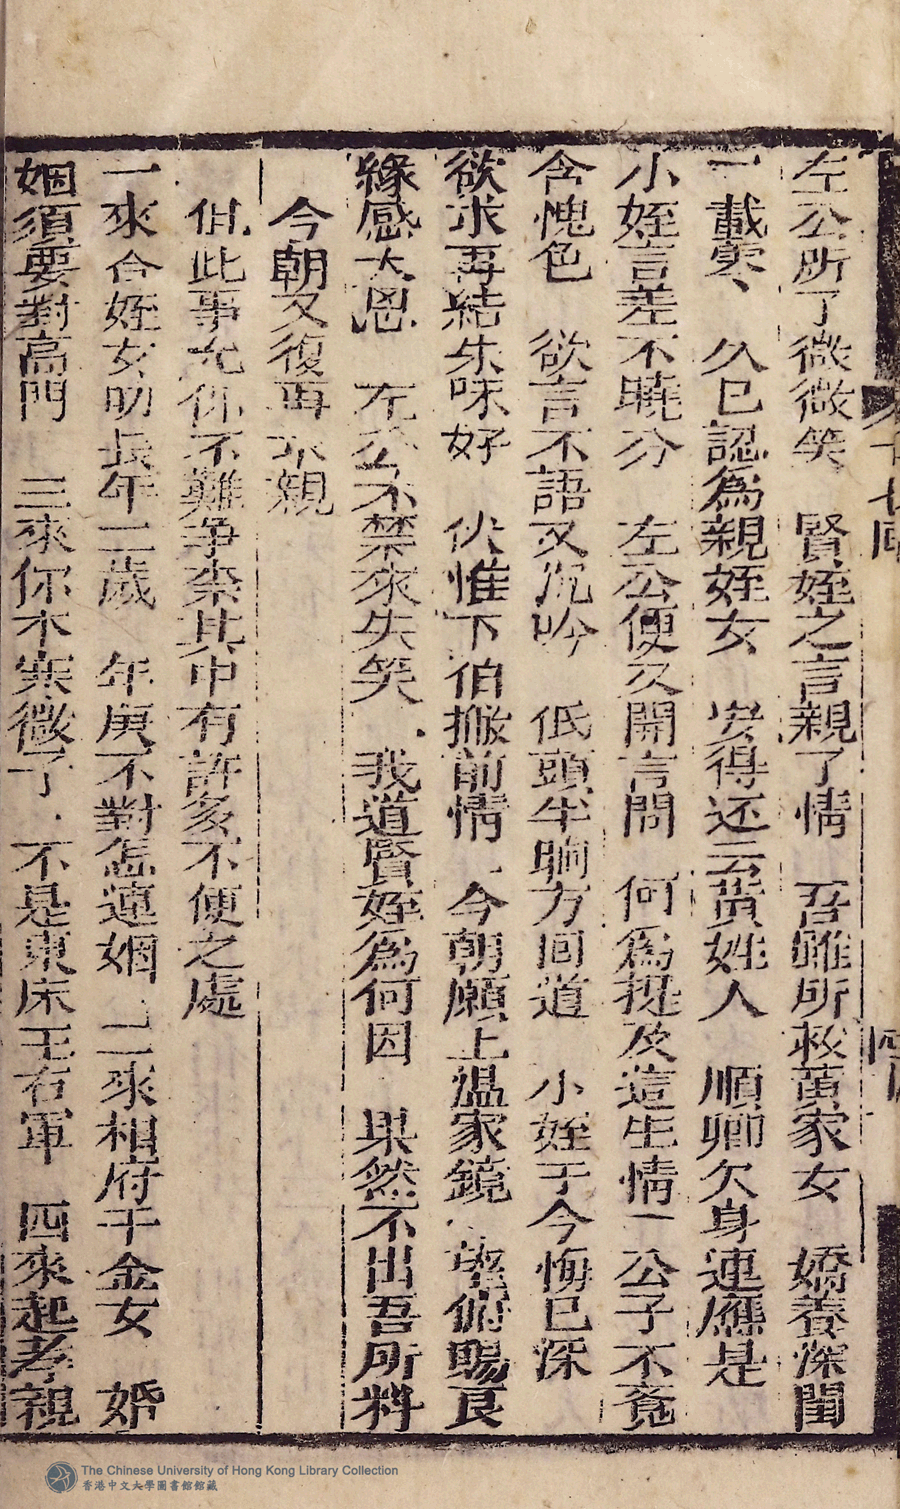 左公所了微微笑、　賢姪之言親了情　吾雖所救黃家女　嬌養深閨
一載零、　久已認為親姪女　安得还云黃姓人　順卿欠身連應是
小姪言差不曉分　左公便又開言問　何為提及這生情　公子不覔
含愧色　欲言不語又沉吟　低頭半晌方回道　小姪于今悔已深
欲求再結朱陳好　伏惟下伯撇前情　今朝願上溫家鏡　望俯賜良
緣感大恩　左公不禁來失笑　我道賢姪為何因　果然不出吾所料
今朝又復再求親
但此事允你不難爭柰其中有許多不便之處
一來合姪女叨長年二歲　年庚不對怎連姻　二來相府千金女　婚
姻須要對高門　三來你木寒微了　不是東床王右軍　四來起孝親
十七回
The Chinese University of Hong Kong Library Collection
香港中文大學圖書館館藏